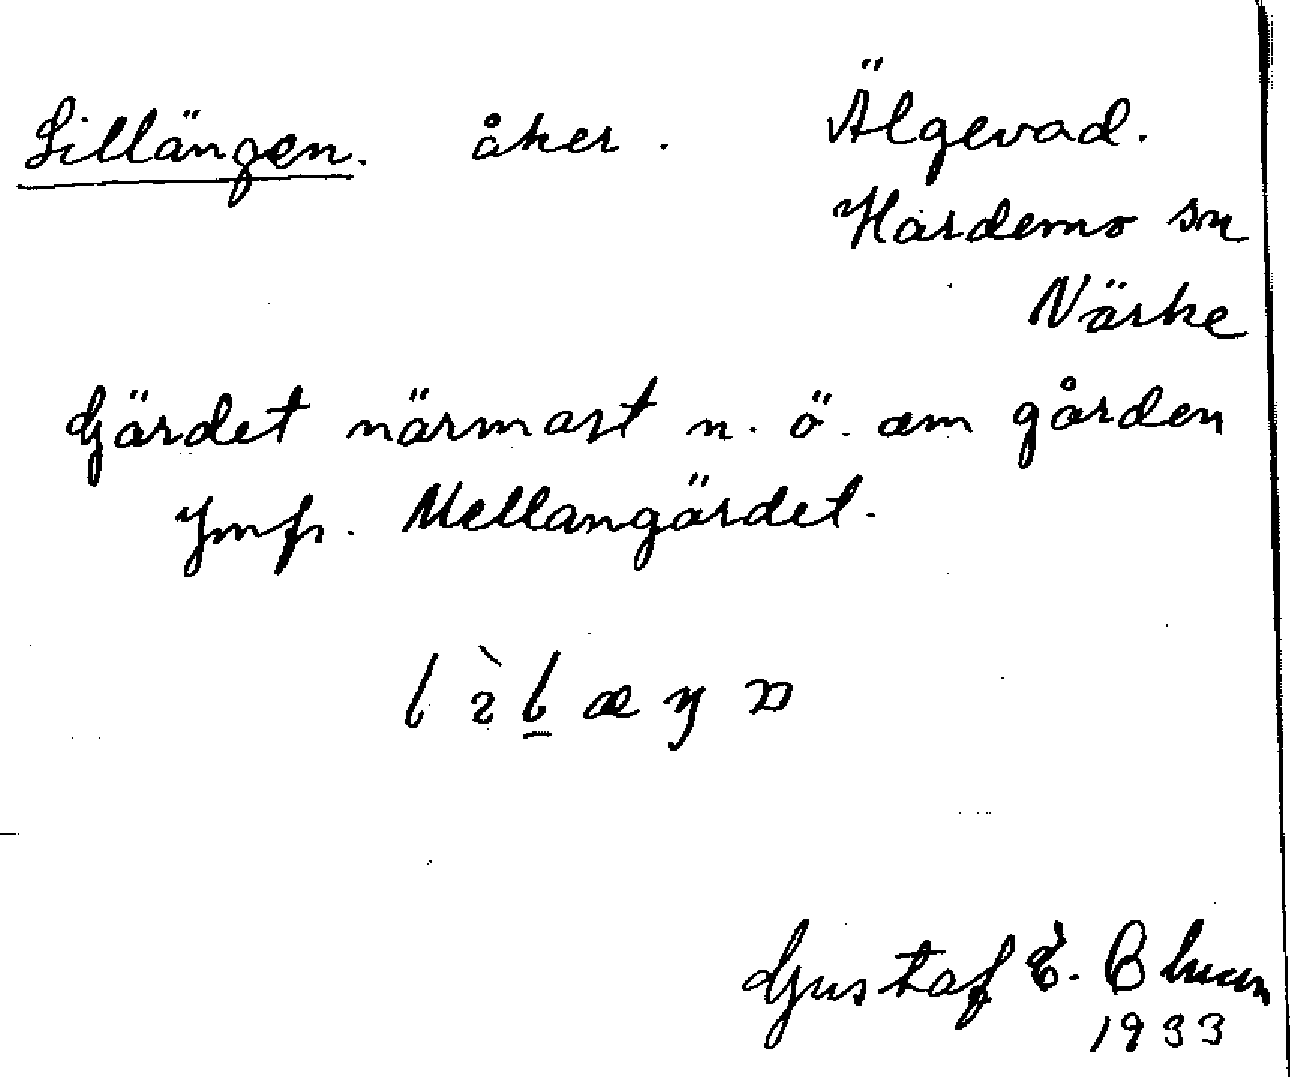 Lillängen. åker. Älgevad.
Hardemo sn
Närke
Gärdet närmast n. ö. om gården
Jmfr. Mellangärdet.
Gustaf E.
1933